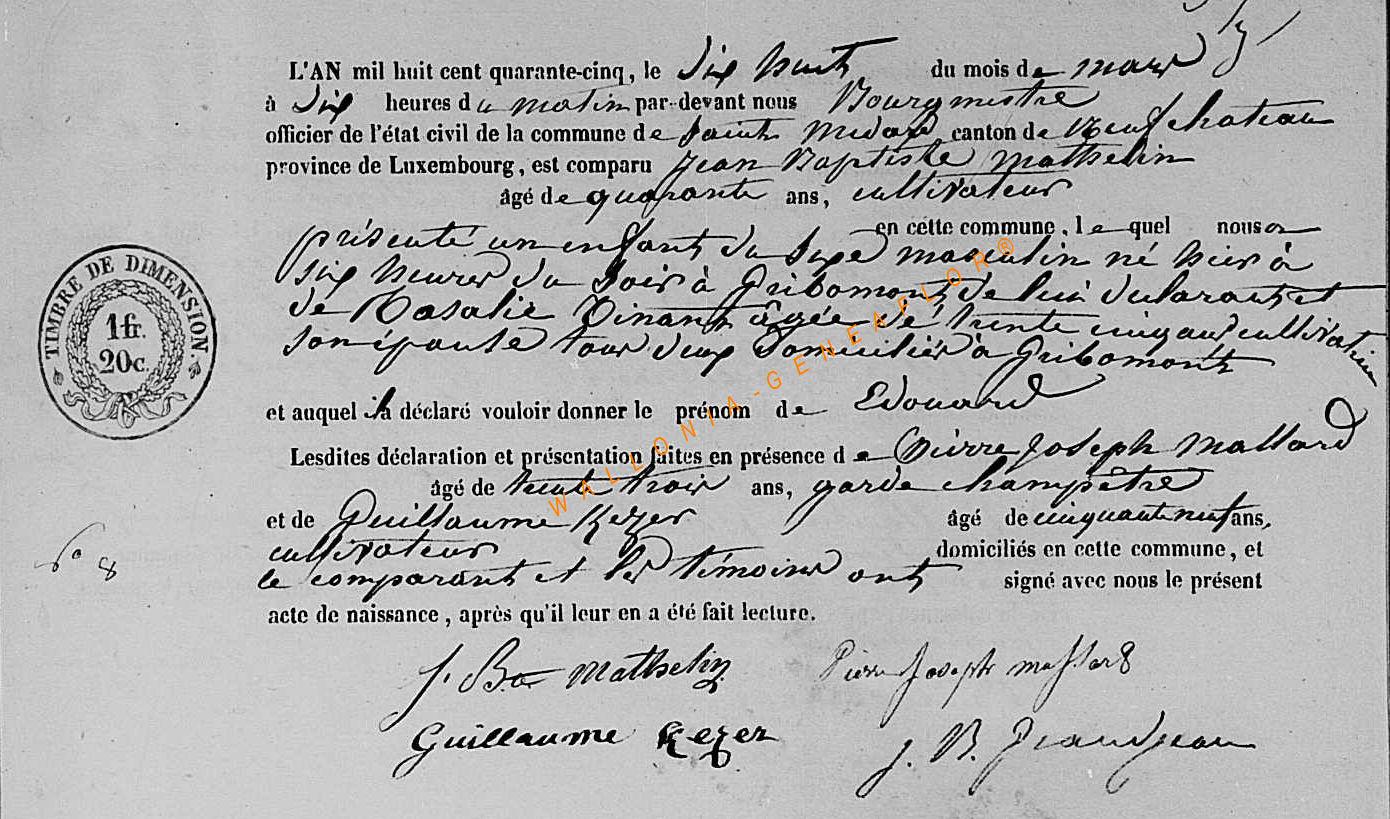 L'AN mil huit cent quarante-cinq, le dix huit du mois de mars
à dix heures du matin par-devant nous Bourgmestre
officier de l'état civil de la commune de Saint Medard canton de Neufchateau
province de Luxembourg, est comparu Jean Baptiste Mathelin
âgé de quarante ans, cultivateur
en cette commune, lequel nous a
présenté un enfant du sexe masculin né hier à
six heures du soir à Gribomont de lui déclarant et
de Rosalie Dinant âgée de trente cinq ans cultivatrice
son épouse tous deux domiciliés à Gribomont
et auquel il a déclaré vouloir donner le prénom de Edouard
Lesdites déclaration et présentation faites en présence de Pierre Joseph Mallard
âgé de trente trois ans, garde champêtre
et de Guillaume Kezer âgé de cinquante neuf ans,
cultivateur domiciliés en cette commune, et
le comparant et les témoins ont signé avec nous le présent
acte de naissance, après qu'il leur en a été fait lecture.
J. Bte Mathelin Pierre Joseph Mallard
Guillaume Kezer J. B. Jeandjean
TIMBRE DE DIMENSION.
1 fr.
20 c.
No 8
WALLONIA-GENEAFLOR®